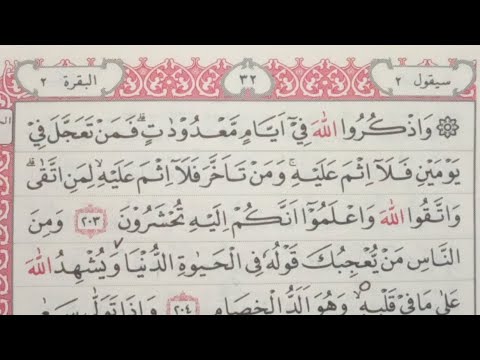 سيقول ٢ ٣٢ البقرة ٢
۞ وَاذْكُرُوا اللهَ فِيْٓ اَيَّامٍ مَّعْدُوْدٰتٍ ۗ فَمَنْ تَعَجَّلَ فِيْ
يَوْمَيْنِ فَلَآ اِثْمَ عَلَيْهِ ۚ وَمَنْ تَاَخَّرَ فَلَآ اِثْمَ عَلَيْهِ ۙ لِمَنِ اتَّقٰى ۗ
وَاتَّقُوا اللهَ وَاعْلَمُوْٓا اَنَّكُمْ اِلَيْهِ تُحْشَرُوْنَ ﴿٢٠٣﴾ وَمِنَ
النَّاسِ مَنْ يُّعْجِبُكَ قَوْلُهٗ فِى الْحَيٰوةِ الدُّنْيَا وَيُشْهِدُ اللهَ
عَلٰى مَا فِيْ قَلْبِهٖ ۙ وَهُوَ اَلَدُّ الْخِصَامِ ﴿٢٠٤﴾ وَاِذَا تَوَلّٰى سَعٰى